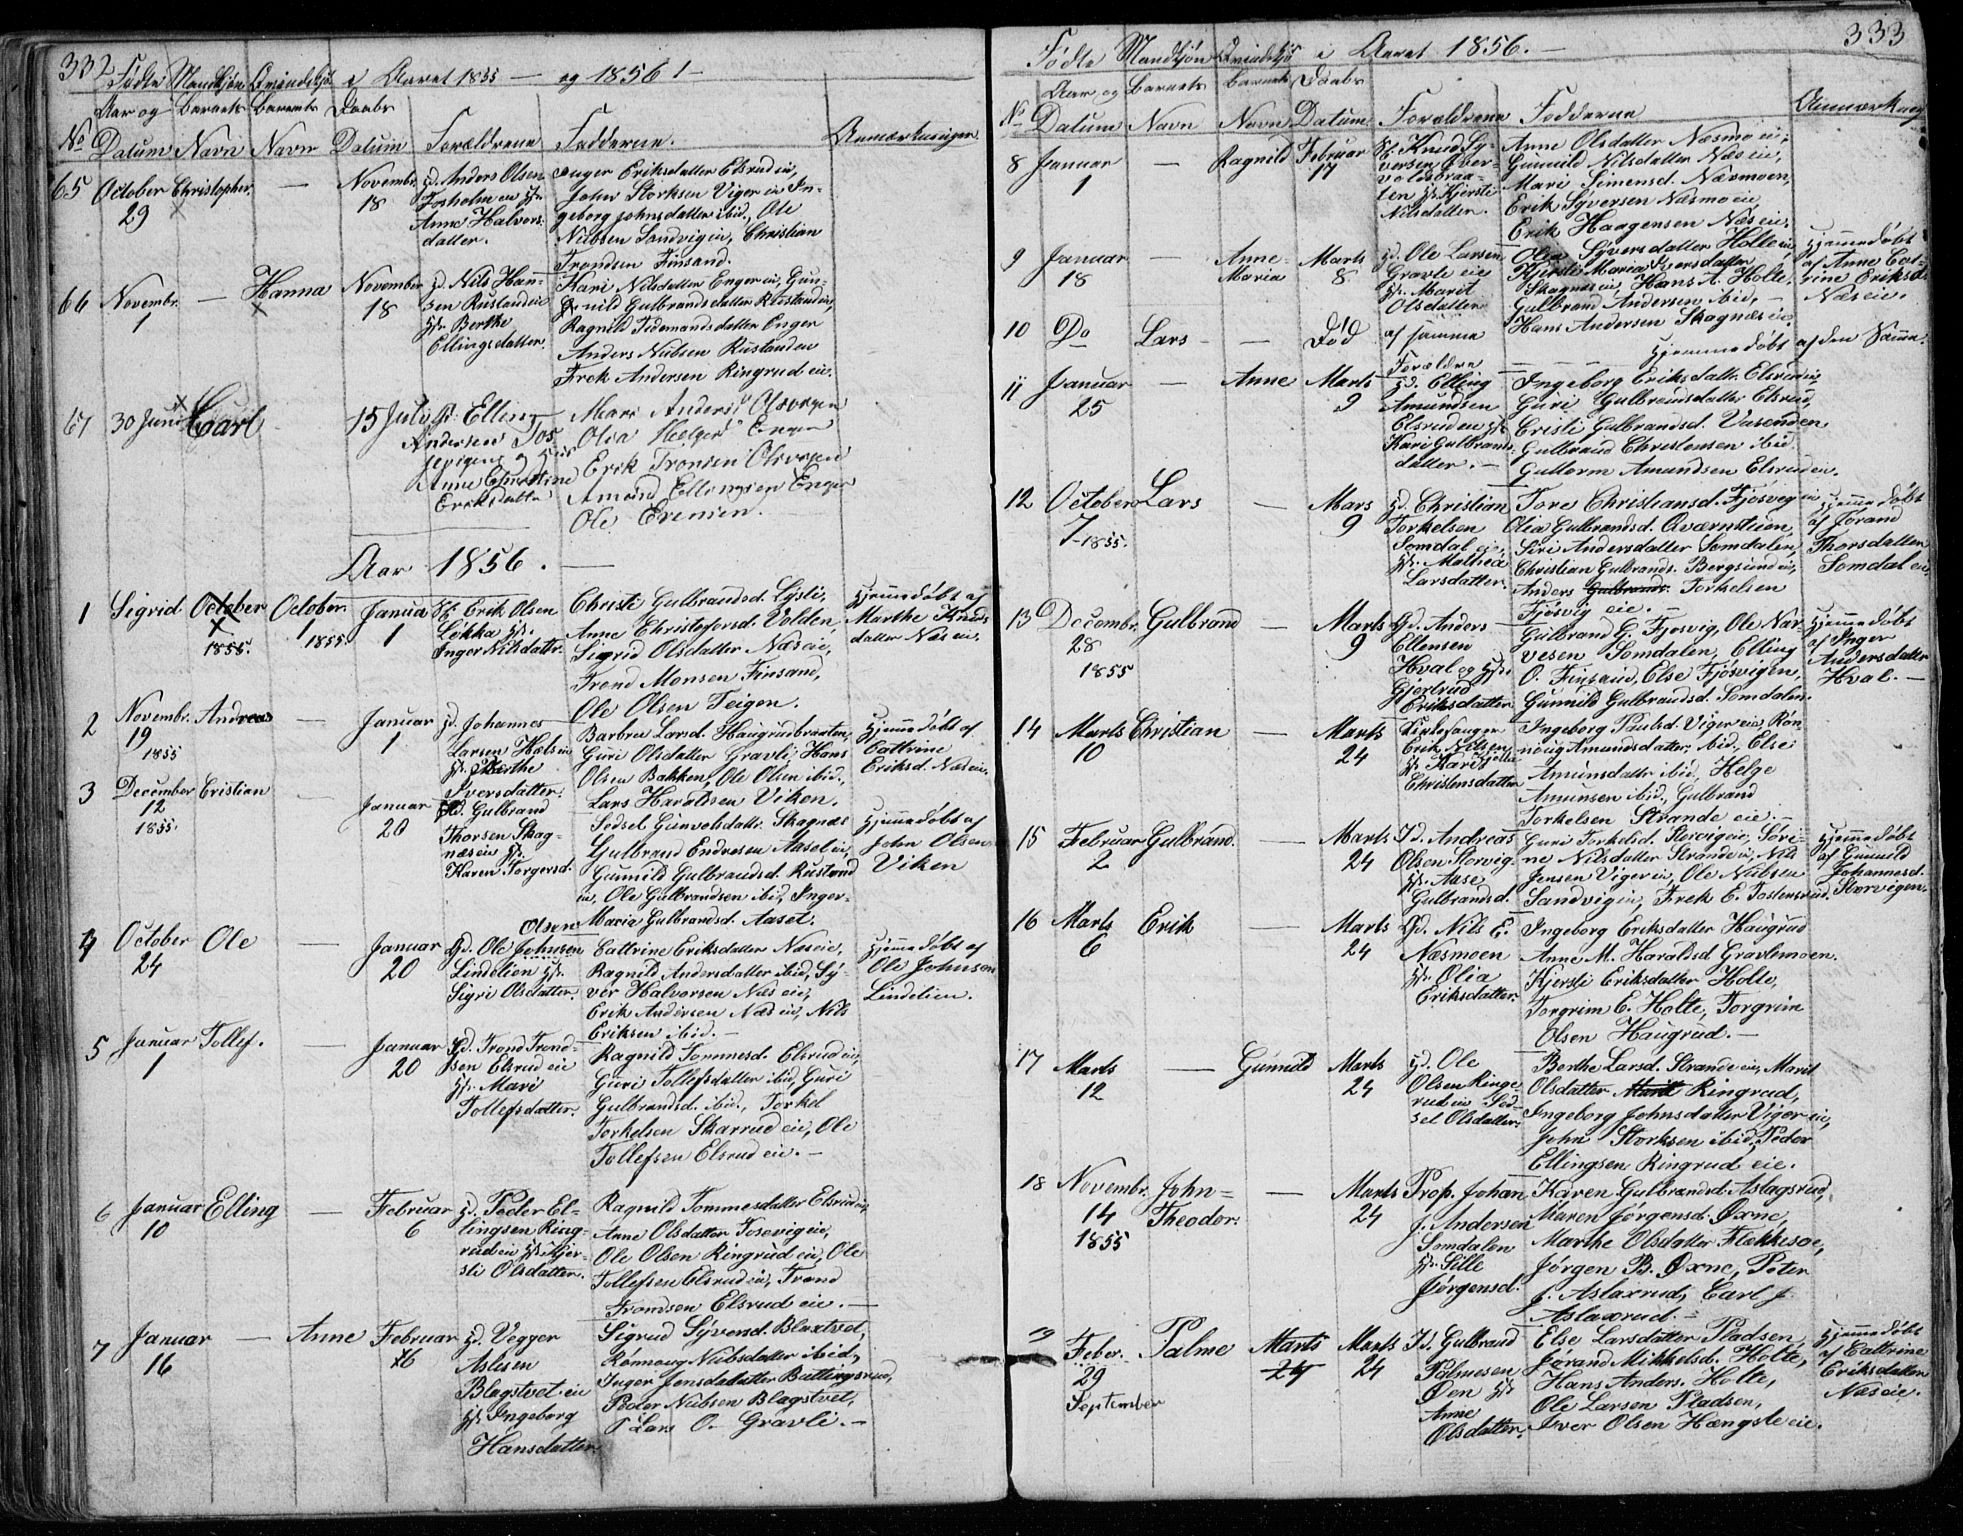 332
Fødte Mandkjøn Qvindekjøn i Aaret 1855 — og 1856 1—
Aar og Barnets Barnets Daabs
No Datum Navn Navn Datum Forældrene Fadderne. Anmærkninger.
65 October Christopher. — Novembr. Gd. Anders Olsen
29 18 Fosholm eie Hst.
Anne Halvors-
datter.
Inger Eriksdatter Elsrud eie,
John Storksen Viger eie In-
geborg Johnsdatter ibid., Ole
Nubsen Sandvig eie, Christian
Trondsen Finsand.
66 Novembr. — Hanna November Gd. Nils Han-
1 18 sen Rustand eie
Hst. Berthe
Ellingsdatter.
Kari Nilsdatter Enger eie, Gun-
nild Gulbrandsdatter Rustand eie,
Ragnild Tidemandsdatter Enger
Anders Nubsen Rustand eie
Frek Andersen Ringrud eie.
67 30 Juni Carl 15 Juli Gr. Elling
Andersen
Anne Christine
Eriksdatter
Mari Andersd Olsvogen
Olia Helgesd Enger
Erik Tronsen Olsvogen
Amund Ellingsen Enger
Ole Evensen.
Aar 1856. —
1 Sigrid October October Janua Gf. Erik Olsen
1 1 1 Løkka Hst.
1855. 1855. Inger Nilsdattr.
Christi Gulbrandsd. Lysli,
Anne Christofersd. Volden,
Sigrid Olsdatter Næs eie,
Trond Monsen Finsand,
Ole Olsen Teigen.
Hjemmedøbt af
Marthe Knuds
datter Næs eie.
2 Novembr. Andreas — Januar Gd. Johannes
19 1 Larsen Hæls eie
1855 Hst. Marthe
Iversdatter.
Barbra Larsd. Haugrudbraaten,
Guri Olsdatter Gravli, Hans
Olsen Bakken, Ole Olsen ibid.,
Lars Haraldsen Viken.
Hjemmedøbt af
Cattrine
Eriksd. Næs eie.
3 December Cristian — Januar Gd. Gulbrand
12 20 Thorsen Skag-
1855. næs eie Hst.
Karen Torgersd.
Sedsel Gunvolsdattr. Skagnæs
Gulbrand Endresen Aasel eie,
Gunnild Gulbrandsd. Rustand
eie, Ole Gulbrandsen ibid., Inger-
Maria Gulbrandsd. Aaset.
Hjemmedøbt af
John Olsen
Viken
4 October Ole — Januar Gd. Ole Johnsen
Olsen
24 20 Lindelien Hst.
Sigri Olsdatter.
Cattrine Eriksdatter Næs eie,
Ragnild Andersdatter ibid., Sy-
ver Halvorsen Næs eie,
Erik Andersen Næs eie, Nils
Eriksen ibid. —
Hjemmedøbt af
Ole Johnsen
Lindelien.
5 Januar Tollef. — Januar Gd. Trond Trond-
1 20 sen Elsrud eie
Hst. Mari
Tollefsdatter.
Ragnild Tommesd. Elsrud eie,
Guri Tollefsdatter ibid., Guri
Gulbrandsd. ibid., Torkel
Torkelsen Skarrud eie, Ole
Tollefsen Elsrud eie. —
6 Januar Elling — Februar Gd. Peder El-
10 6 lingsen Ring-
rud eie Hst. Kjer-
sti Olsdatter.
Ragnild Tommesdatter Elsrud eie,
Anne Olsdatter Tosevig eie,
Ole Olsen Ringrud eie, Ole
Tollefsen Elsrud eie, Trond
Trondsen Elsrud eie. —
7 Januar — Anne Februar Gd. Vegger
16 16 Aslesen
Blagstvet eie
Hst. Ingeborg
Hansdatter.
Sigrud Syversd. Blaxtvet,
Rønnaug Nubsdatter ibid.,
Inger Jensdatter Buttingsrud,
Peder Nubsen Blagstvet,
Lars O. Gravli. —
333
Fødte Mandkjøn Qvindekjøn i Aaret 1856. —
Aar og Barnets Barnets Daabs
No Datum Navn Navn Datum Forældrene Fadderne Anmærkning
8 Januar — Ragnild Februar Gf. Knud Sy-
1 17 versen Over-
voldsbraa-
ten Hst. Kjersti
Nilsdatter.
Anne Olsdatter Næsmo eie,
Gunnild Nilsdatter Næs eie,
Mari Simensd. Næsmoen,
Erik Syversen Næsmo eie,
Erik Haagensen Næs eie.
9 Januar — Anne- Marts Gd. Ole Larsen
18 Maria 8 Gravli eie
Hst. Marit
Olsdatter
Olia Syversdatter Holte eie,
Kjersti Maria Iversdatter
Skagnæs eie, Hans A. Holte,
Gulbrand Andersen ibid., —
Hans Andersen Skagnæs eie.
Hjemmedøbt
af Anne Cat-
rine Eriksd.
Næs eie.
10 Do Lars — Død af samme
Forældre
Hjemmedøbt af den Samme.
11 Januar — Anne Marts Gd. Elling
25 9 Amundsen
Elsrud eie Hst
Kari Gulbrands-
datter. —
Ingeborg Eriksdattr. Elsrud eie,
Guri Gulbrandsdatter Elsrud,
Cristi Gulbrandsd. Vasenden
Gulbrand Christensen ibid.
Guttorm Amundsen Elsrud eie.
12 October Lars — Mars Gd. Christian
7-1855. 9 Torkelsen
Somdal eie,
Hst. Mathea
Larsdatter.
Tore Christiansd. Fjøsvig eie
Olia Gulbrandsd. Qværnstuen,
Siri Andersdatter Somdalen,
Christian Gulbrands. Bergsund eie,
Anders Gulbrands. Torkelsen
Fjøsvig eie. —
Hjemmedøbt
af Jorand
Thorsdatter
Somdal eie.
13 Decembr. Gulbrand — Marts Gd. Anders
28 9 Ellensen
1855 Hval og Hst.
Gjertrud
Eriksdatter
Gulbrand G. Fjøsvig, Ole Nar-
vesen Somdalen, Elling
O. Finsand, Else Fjøsvigen,
Gunnild Gulbrandsd. Somdalen.
Hjemmedøbt
af Inger
Andersdatter
Hval. —
14 Marts Christian — Marts Kirkesanger
10 24 Erik Nilsen
Hst. Kari
Christensdatter
Ingeborg Paulsd. Viger eie, Røn-
noug Amundsdatter ibid., Else
Amunsdatter ibid., Helge
Amunsen ibid., Gulbrand
Torkelsen Strande eie. —
15 Februar Gulbrand. — Marts Id. Andreas
2 24 Olsen Storvig-
Hst. Aase
Gulbrandsd.
Guri Torkelsd. Storvig eie, Søri-
ne Nilsdatter Strande eie, Nils
Jensen Viger eie, Ole Nubsen
Sandvig eie, Frek E. Tostensrud.
Hjemmedøbt
af Gunnild
Johannesd.
Storvigen.
16 Marts Erik — Marts Gd. Nils E.
6 24 Næsmoen
Hst. Olia
Eriksdatter.
Ingeborg Eriksdatter Haugrud
Anne M. Haraldsd. Gravlemoen.
Kjersti Eriksdatter Holte,
Torgrim E. Holte, Torgrim
Olsen Haugrud. —
17 Marts — Gunnild Marts Gd. Ole
12 24 Olsen Ringe-
rud eie Sed-
sel Olsdatter.
Berthe Larsd. Strande eie, Marit
Olsdatter Marit Ringrud,
Ingeborg Johnsdatter Viger eie,
John Storksen ibid., Peder
Ellingsen Ringrud eie.
18 Novembr. John- — Marts Prop. Johan
14 Theodor. 24 J. Andersen
1855 Somdalen
Hst. Sille
Jørgensd.
Karen Gulbrandsd. Aslagsrud,
Maren Jørgensd. Øxne,
Marthe Olsdatter Flækkesøe,
Jørgen B. Øxne, Peter
J. Aslaxrud, Carl J.
Aslaxrud. —
19 Feber. Palme Marts Marts Id. Gulbrand
29 24 24 Palmesen
September Øen Hst
Anne
Olsdatter.
Else Larsdatter Pladsen,
Jørand Mikkelsd. Holte,
Hans Anders. Holte,
Ole Larsen Pladsen,
Iver Olsen Hængsle eie.
Hjemmedøbt
af Cattrine
Eriksdatter
Næs eie.